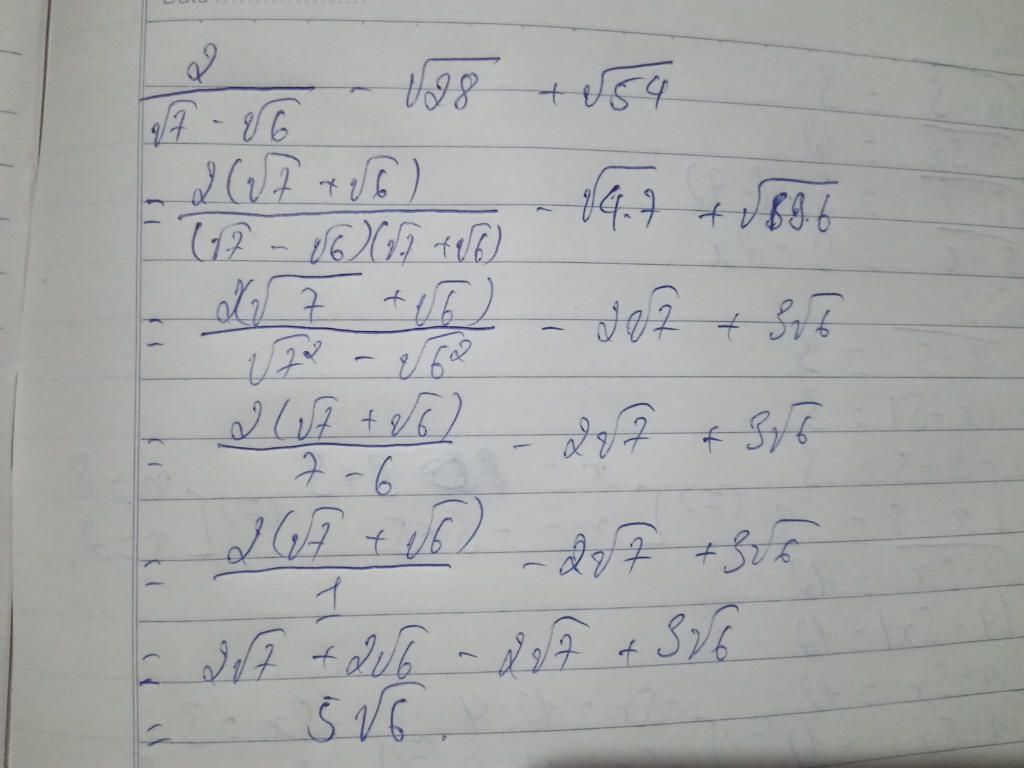 2/(√7 - √6) - √28 + √54
= 2(√7 + √6)/((√7 - √6)(√7 + √6)) - √4.7 + √9.6
= 2(√7 + √6)/(√7² - √6²) - 2√7 + 3√6
= 2(√7 + √6)/(7 - 6) - 2√7 + 3√6
= 2(√7 + √6)/1 - 2√7 + 3√6
= 2√7 + 2√6 - 2√7 + 3√6
= 5√6.